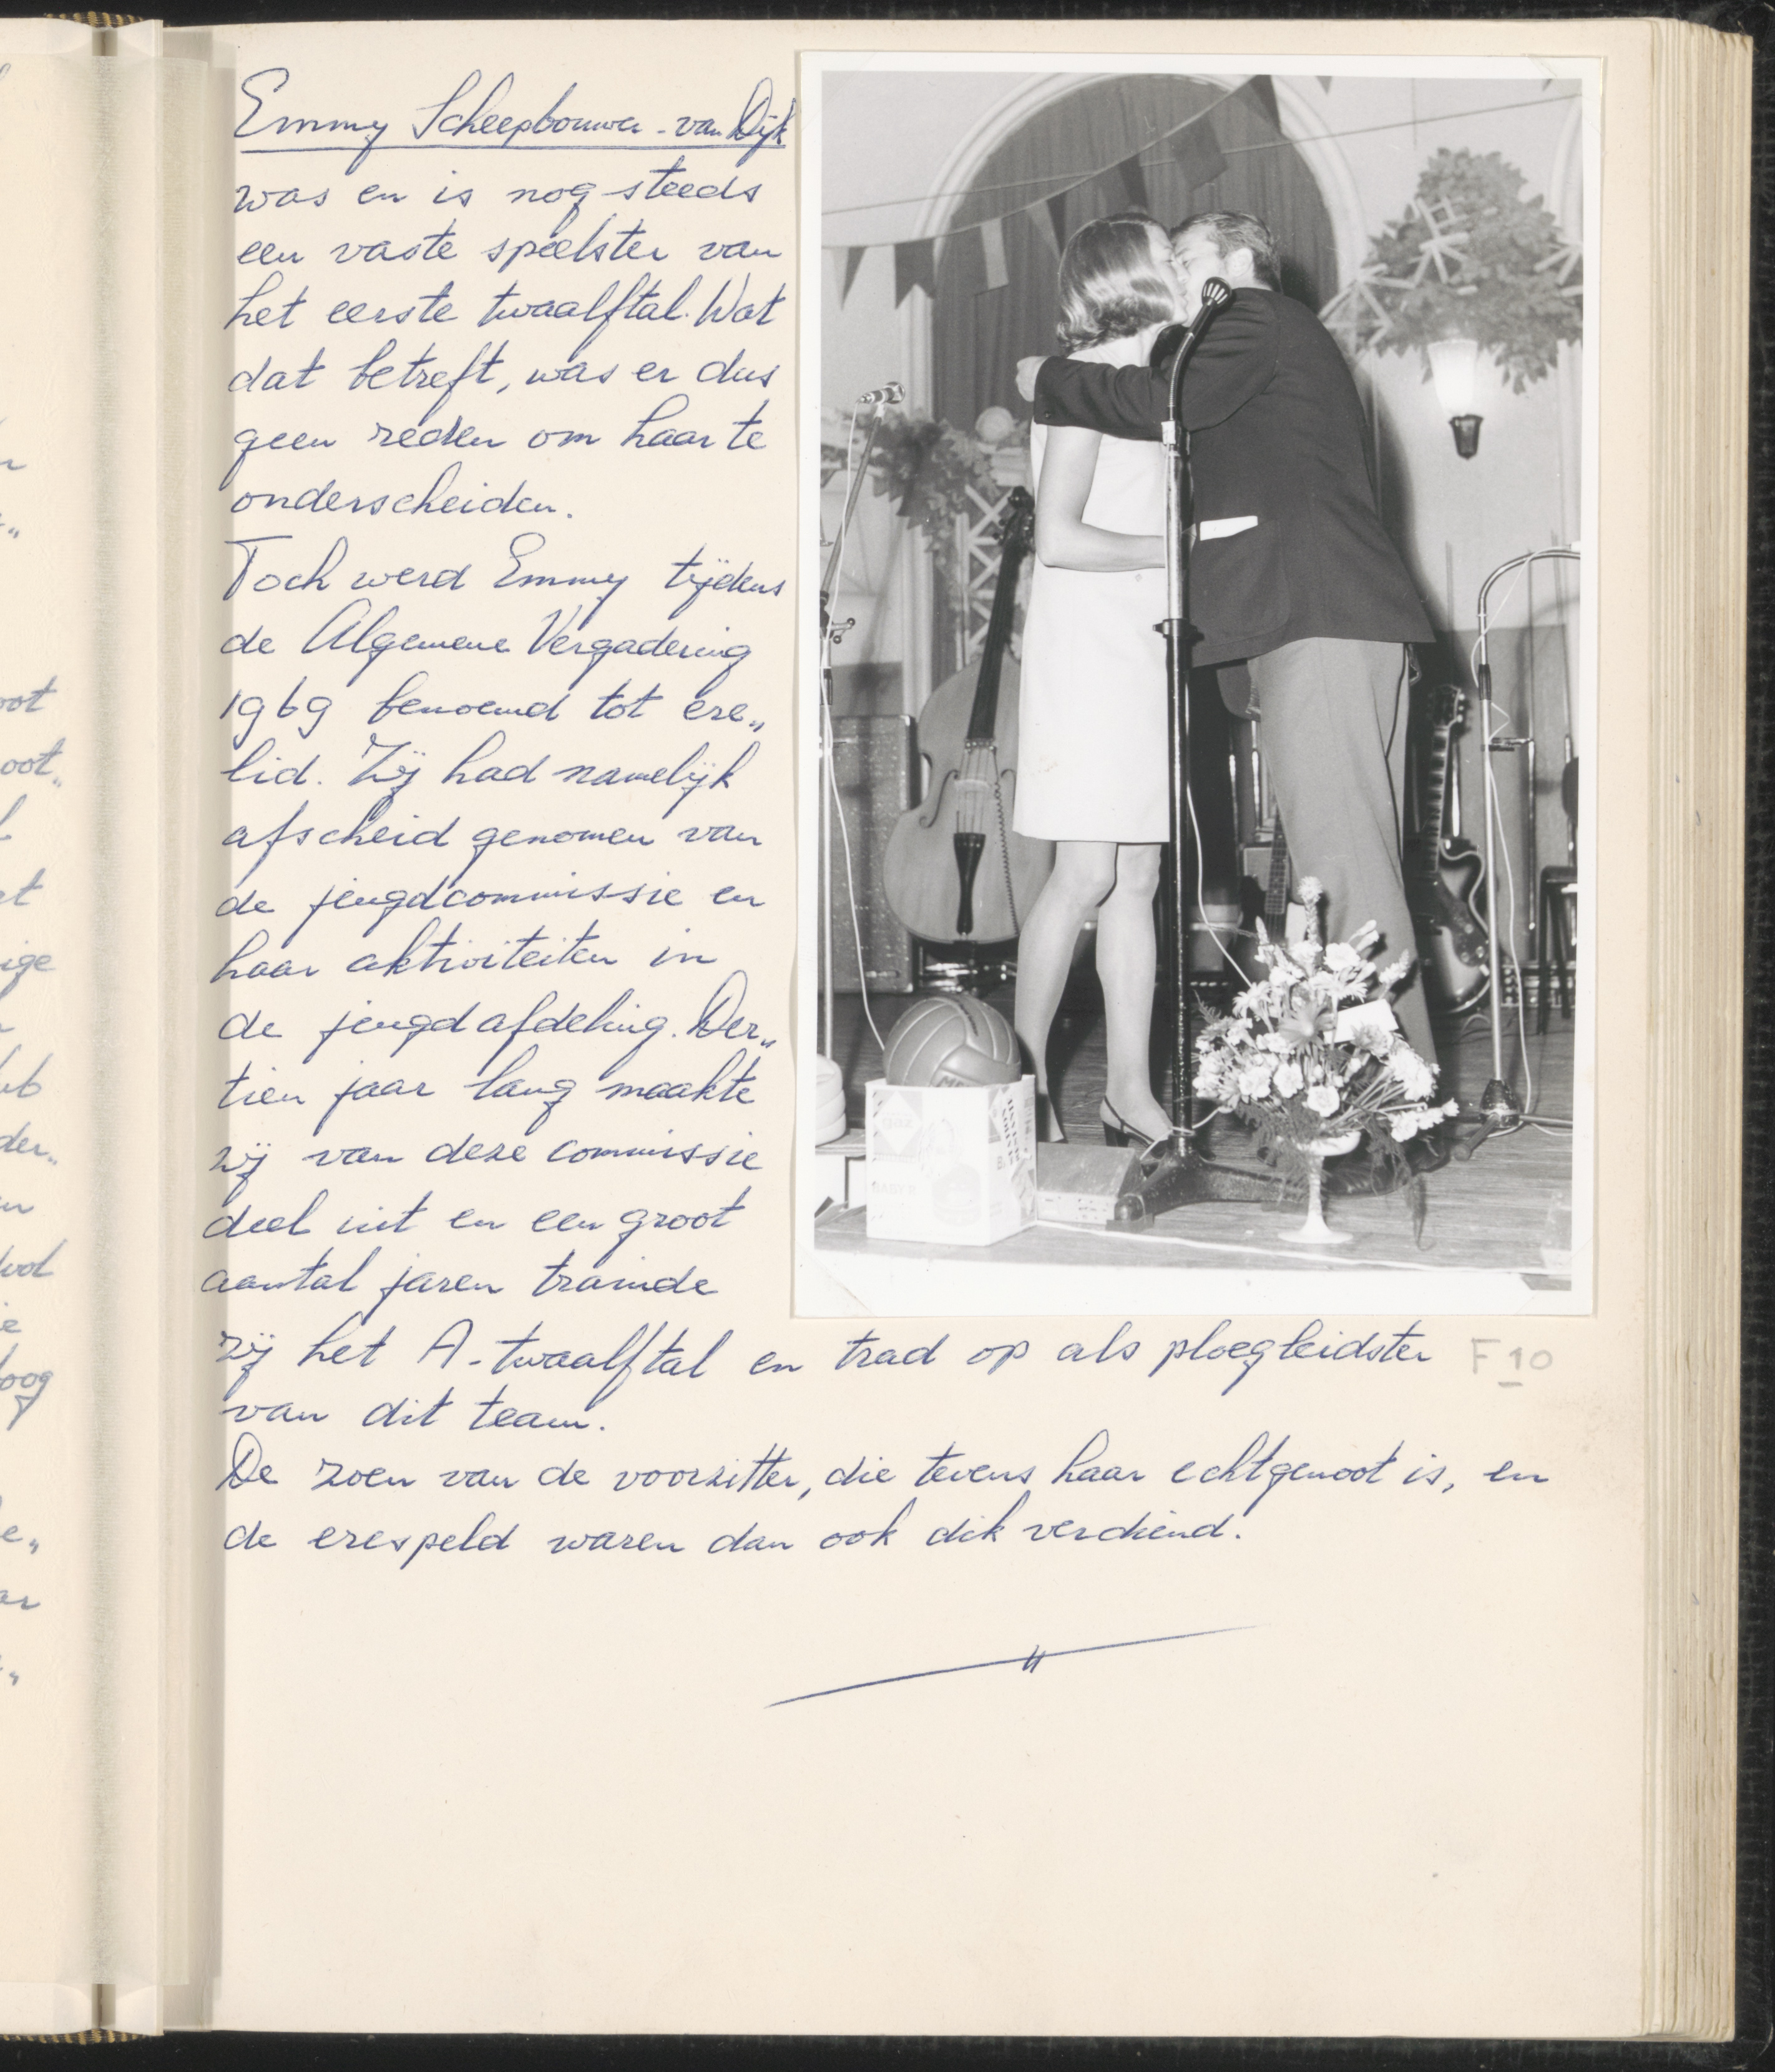 Emmy Scheepbouwer - van Dijk
was en is nog steeds
een vaste speelster van
het eerste twaalftal. Wat
dat betreft, was er dus
geen reden om haar te
onderscheiden.
Toch werd Emmy tijdens
de Algemene Vergadering
1969 benoemd tot ere„
lid. Zij had namelijk
afscheid genomen van
de jeugdcommissie en
haar aktiviteiten in
de jeugdafdeling. Der„
tien jaar lang maakte
zij van deze commissie
deel uit en een groot
aantal jaren trainde
zij het A-twaalftal en trad op als ploegleidster
F 10
van dit team.
De zoen van de voorzitter, die tevens haar echtgenoot is, en
de erespeld waren dan ook dik verdiend.